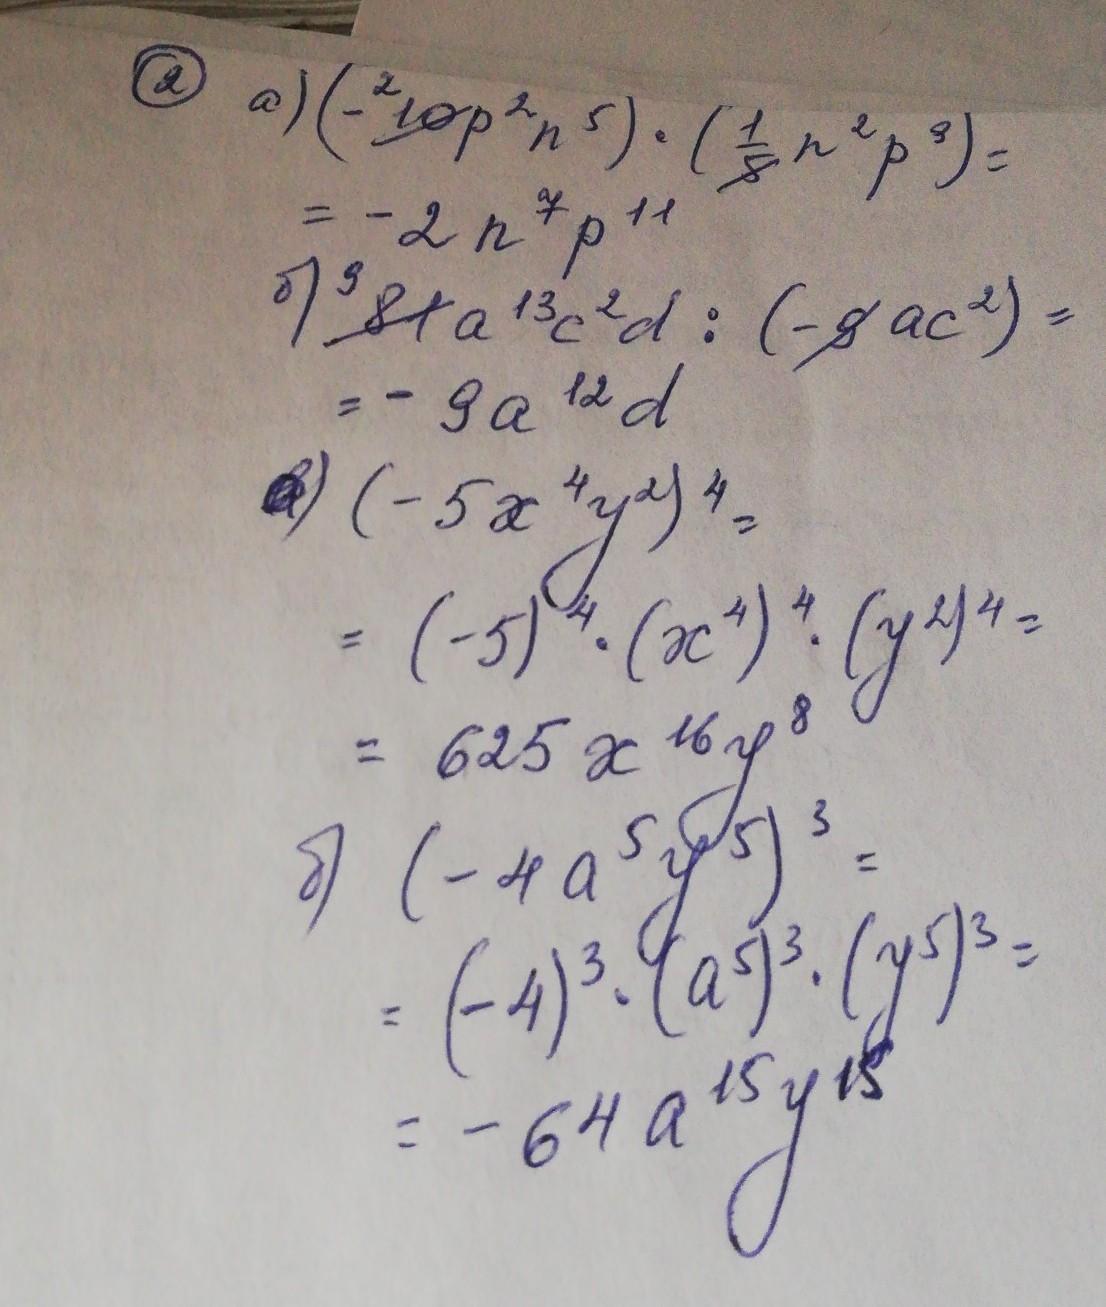 ② а) (-²10p²n⁵) · (1/5 n²p⁹) =
= -2n⁷p¹¹
б) ⁹81a¹³c²d : (-9ac²) =
= -9a¹²d
в) (-5x⁴y²)⁴ =
= (-5)⁴ · (x⁴)⁴ · (y²)⁴ =
= 625x¹⁶y⁸
б) (-4a⁵y⁵)³ =
= (-4)³ · (a⁵)³ · (y⁵)³ =
= -64a¹⁵y¹⁵